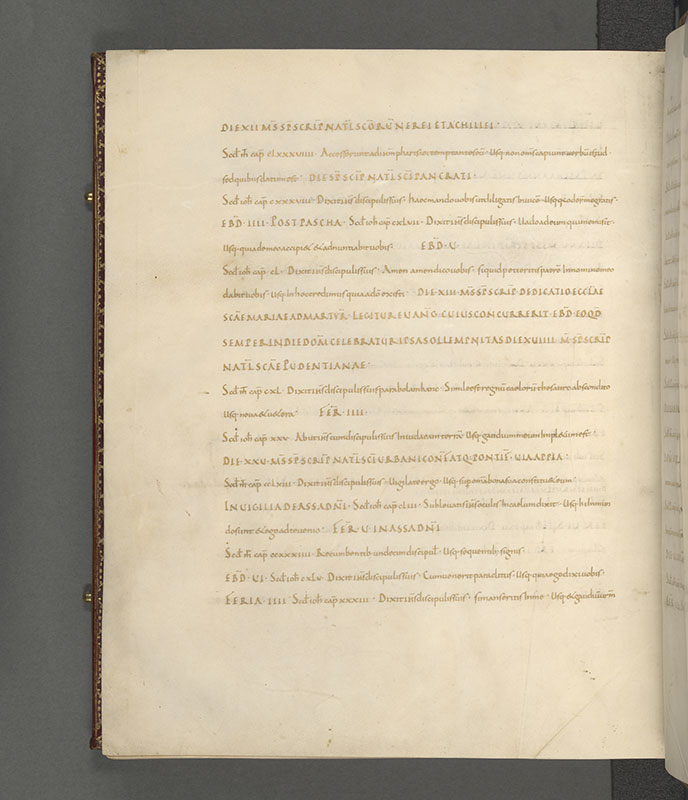 DIE XII MS̄ SP̄ SCRIP̄ NATL̄ SCŌRŪ NEREI ET ACHILLEI ·
Scd̄ m̄t cap̄ CLXXXVIIII · Accesserunt ad ih̄m pharisei temptantes eū · Usq non om̄s capiunt uerbū istud
sed quibus datū est · DIE SP̄ SCRIP̄ NATL̄ SCĪ PANCRATI ·
Scd̄ ioh̄ cap̄ CXXXVIII · Dixit ih̄s discipulis suis · haec mando uobis ut diligatis inuicē · Usq
EBD̄ · IIII · POST PASCHA · Scd̄ ioh̄ cap̄ CXLVII · Dixit ih̄s discipulis suis · Uado ad eum qui me misit ·
Usq quia de meo accipiet & adnuntiabit uobis · EBD̄ · U ·
Scd̄ ioh̄ cap̄ CL · Dixit ih̄s discipulis suis · Amen amen dico uobis · si quid petieritis patrē in nomine meo
dabit uobis · Usq in hoc credimus quia a dō existi · DIE XIII · MS̄ SP̄ SCRIP̄ DEDICATIO ECCLAE
SCĀE MARIAE AD MARTYR̄ · LEGITUR EUANḠ CUIUS CONCURRERIT EBD̄ EO QD
SEMPER IN DIE DOM̄ CELEBRATUR IPSA SOLLEMPNITAS DIE XUIIII · M̄ SP̄ SCRIP̄
NATL̄ SCĀE PUDENTIANAE ·
Scd̄ m̄t cap̄ CXL · Dixit ih̄s discipulis suis parabolam hanc · Simile est regnū caelorū thesauro abscondito
Usq noua & uetera · FER̄ · IIII ·
Scd̄ ioh̄ cap̄ XXV · Abiit ih̄s cum discipulis suis in iudaeam terrā · Usq gaudium meum impletum est ·
DIE · XXV · MS̄ SP̄ SCRIP̄ NATL̄ SCĪ URBANI CONF̄ ATQ · PONTIF̄ · UIA APPIA ·
Scd̄ m̄t cap̄ CCLXIII · Dixit ih̄s discipulis suis · Uigilate ergo · Usq super om̄a bona sua constituet eum
IN UIGILIA DE ASSA DN̄I · Scd̄ ioh̄ cap̄ CLIII · Subleuatis ih̄s oculis in caelum dixit · Usq hi in mundo
sunt & ego ad te uenio · FER̄ · U · IN ASSA DN̄I
Scd̄ m̄r cap̄ CCXXXIII · Recumbentib; undecim discipul̄ · Usq sequentib; signis ·
EBD̄ · UI · Scd̄ ioh̄ CXLV · Dixit ih̄s discipulis suis · Cum uenerit paraclitus · Usq quia ego dixi uobis ·
FERIA · IIII · Scd̄ ioh̄ cap̄ XXXIII · Dixit ih̄s discipulis suis · si manseritis in me · Usq & gaudiū